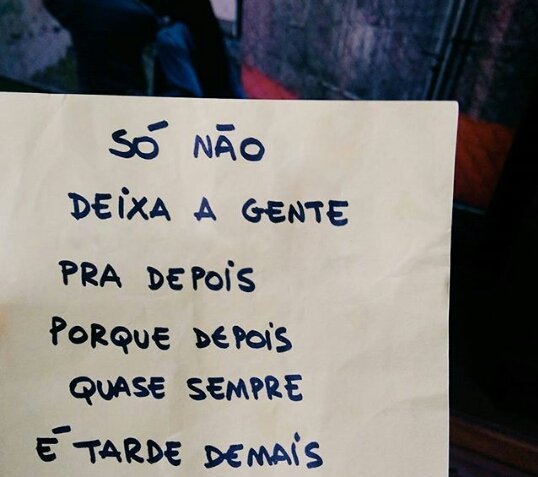 SÓ NÃO
DEIXA A GENTE
PRA DEPOIS
PORQUE DEPOIS
QUASE SEMPRE
É TARDE DEMAIS